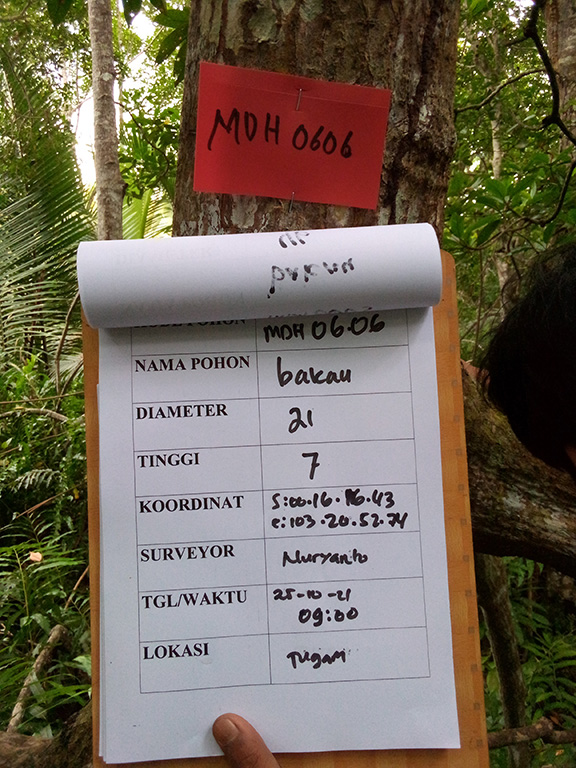 MDH 0606
KODE POHON MDH 06.06
NAMA POHON bakau
DIAMETER 21
TINGGI 7
KOORDINAT S:00.16.16.43
e:103.20.52.74
SURVEYOR Nuryanto
TGL/WAKTU 25-10-21
09:00
LOKASI